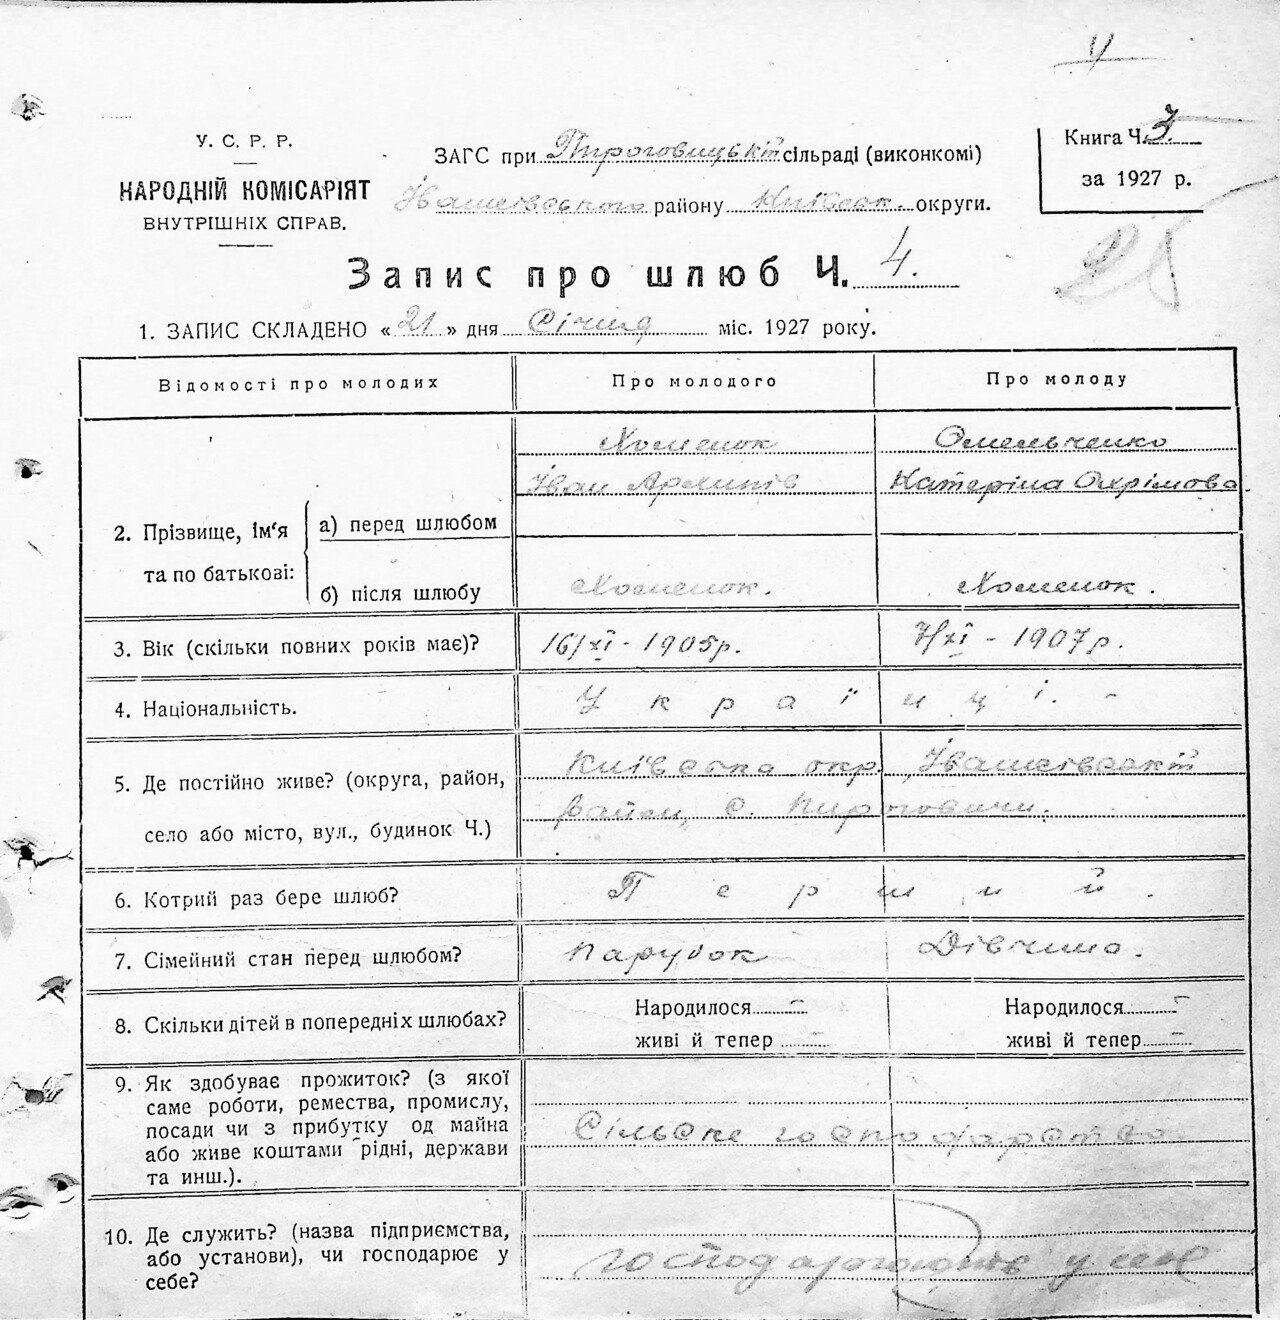 У. С. Р. Р.
НАРОДНІЙ КОМІСАРІЯТ
ВНУТРІШНІХ СПРАВ.
ЗАГС при Пироговицькій сільраді (виконкомі)
Іванківського району Київськ. округи.
Книга Ч. 3
за 1927 р.
25
Запис про шлюб Ч. 4.
1. ЗАПИС СКЛАДЕНО « 21 » дня Січня міс. 1927 року.
Відомості про молодих Про молодого Про молоду
Хоменок Омельченко
Іван Архипів Катеріна Охрімова.
2. Прізвище, ім'я та по батькові:
а) перед шлюбом
б) після шлюбу Хоменок. Хоменок.
3. Вік (скільки повних років має)? 16/XI - 1905р. 7/XI - 1907р.
4. Національність. Українці. -
5. Де постійно живе? (округа, район, Київська окр. Іванківській
село або місто, вул., будинок Ч.) район, с. Пироговичи.
6. Котрий раз бере шлюб? Перший.
7. Сімейний стан перед шлюбом? Парубок Дівчина.
8. Скільки дітей в попередніх шлюбах? Народилося - Народилося -
живі й тепер - живі й тепер -
9. Як здобуває прожиток? (з якої
саме роботи, ремества, промислу,
посади чи з прибутку од майна Сільске господарство
або живе коштами рідні, держави
та инш.).
10. Де служить? (назва підприємства,
або установи), чи господарює у господарюють у
себе?